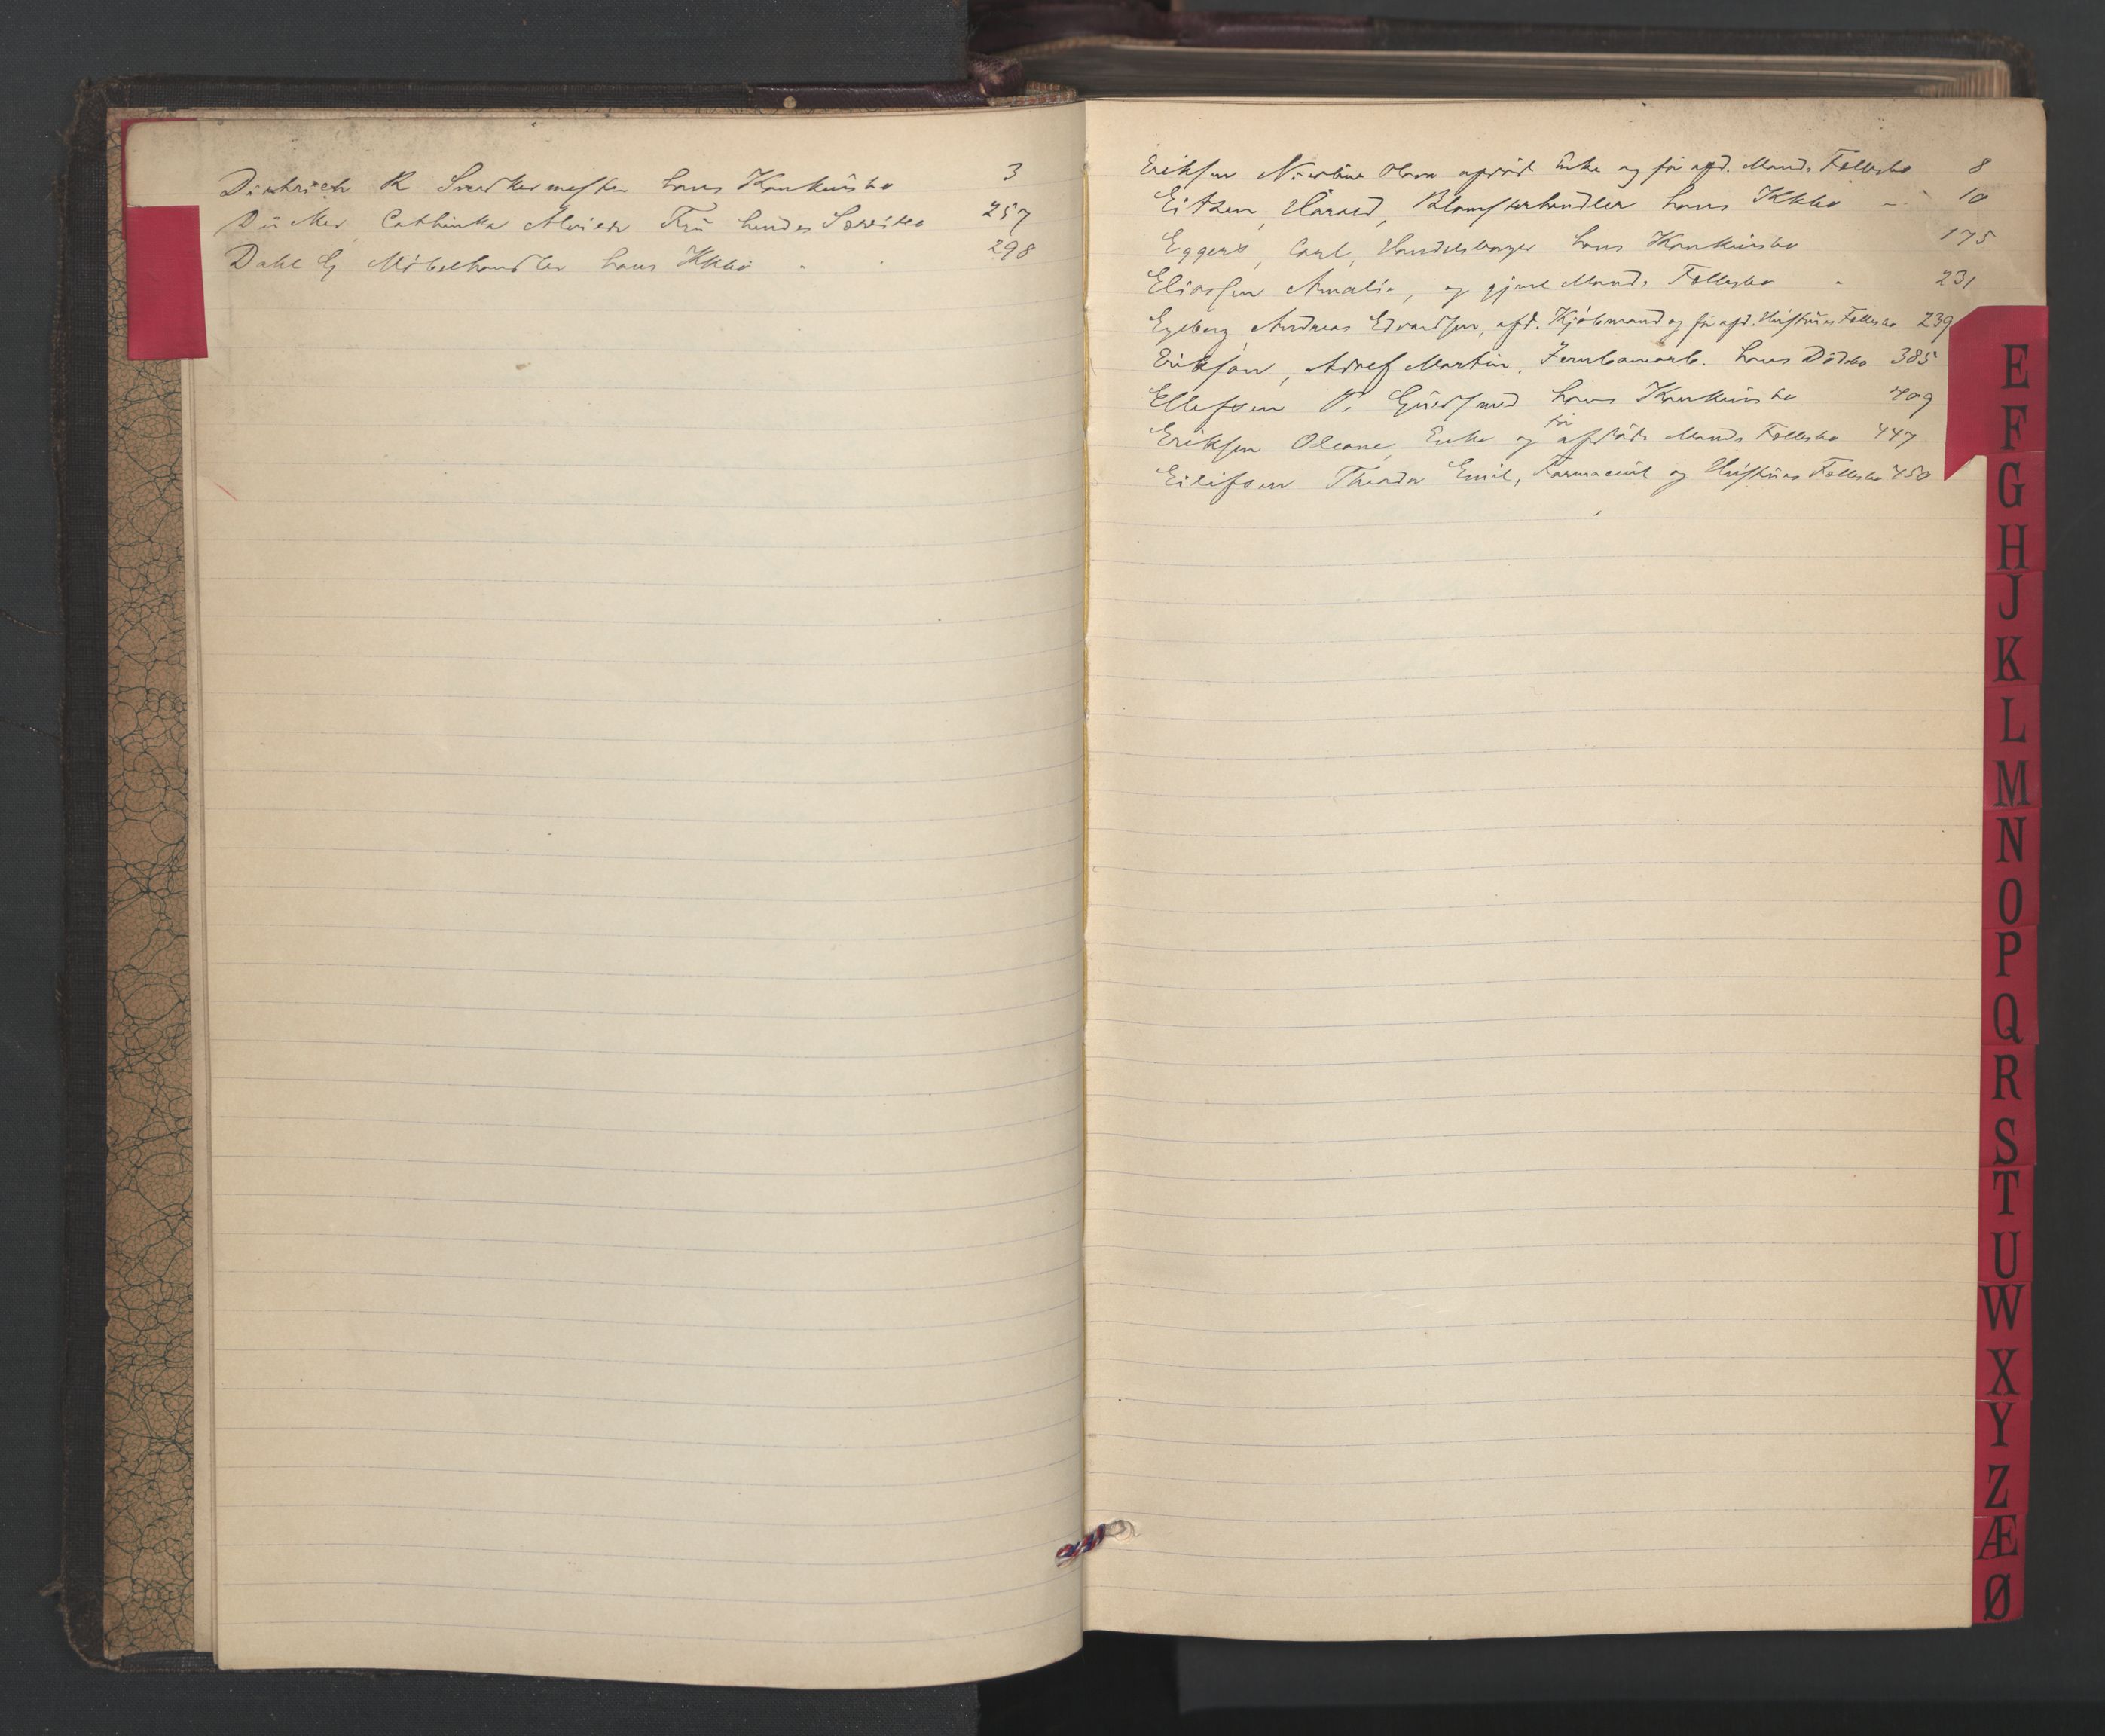 Dietrich R Snedkermester hans Konkursbo 3
Dücker, Cathinka Fru hendes 257
Dahl G Møbelhandler hans Kkbo 298
Eriksen Olava afdød Enke og før afd. Mands Fællesbo 8
Eitzen, Harald, Blomsterhandler hans Kkbo 10
Eggers, Carl, Handelsborger hans Konkursbo 175
Eliassen Amalie, og gjenl Mands Fællesbo 231
Egeberg, Andreas Edvardsen, afd. Kjøbmand og før afd. Hustrues Fællesbo 239
Erikson, Adolf Martin, Jernbanearb. hans Dødsbo 385
Ellefsen P. Guldsmed hans Konkursbo 409
Eriksen Oleane, Enke og før afdøde Mands Fællesbo 447
Eilifsen Theodor Emil, Farmaceut og Hustrues Fællesbo 450
E
F
G
H
J
K
L
M
N
O
P
Q
R
S
T
U
W
X
Y
Z
Æ
Ø